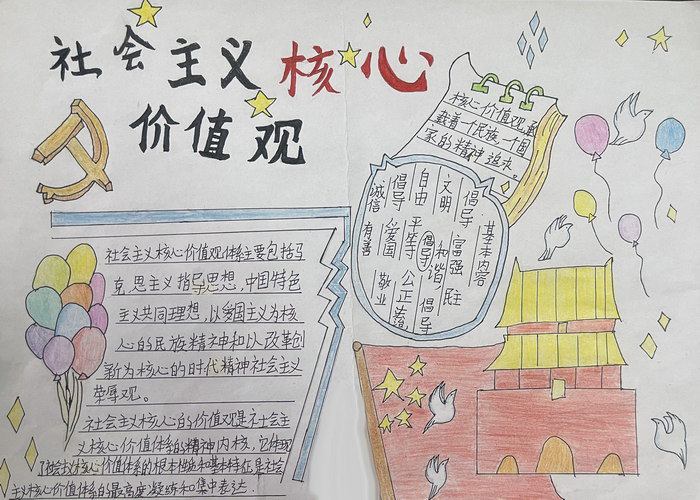 社会主义核心
价值观
核心价值观,承
载着一个民族、一个国
家的精神追求。
基本内容
倡导:富强
民主
文明 和谐
倡导:自由
平等 公正 法治
倡导:爱国 敬业
诚信 友善
社会主义核心价值观体系主要包括马
克思主义指导思想,中国特色
主义共同理想,以爱国主义为核
心的民族精神和以改革创
新为核心的时代精神社会主义
荣辱观。
社会主义核心的价值观是社会主
义核心价值体系的精神内核,它体现
了社会主义核心价值体系的根本性质和基本特征是社会
主义核心价值体系的最高度凝练和集中表达.